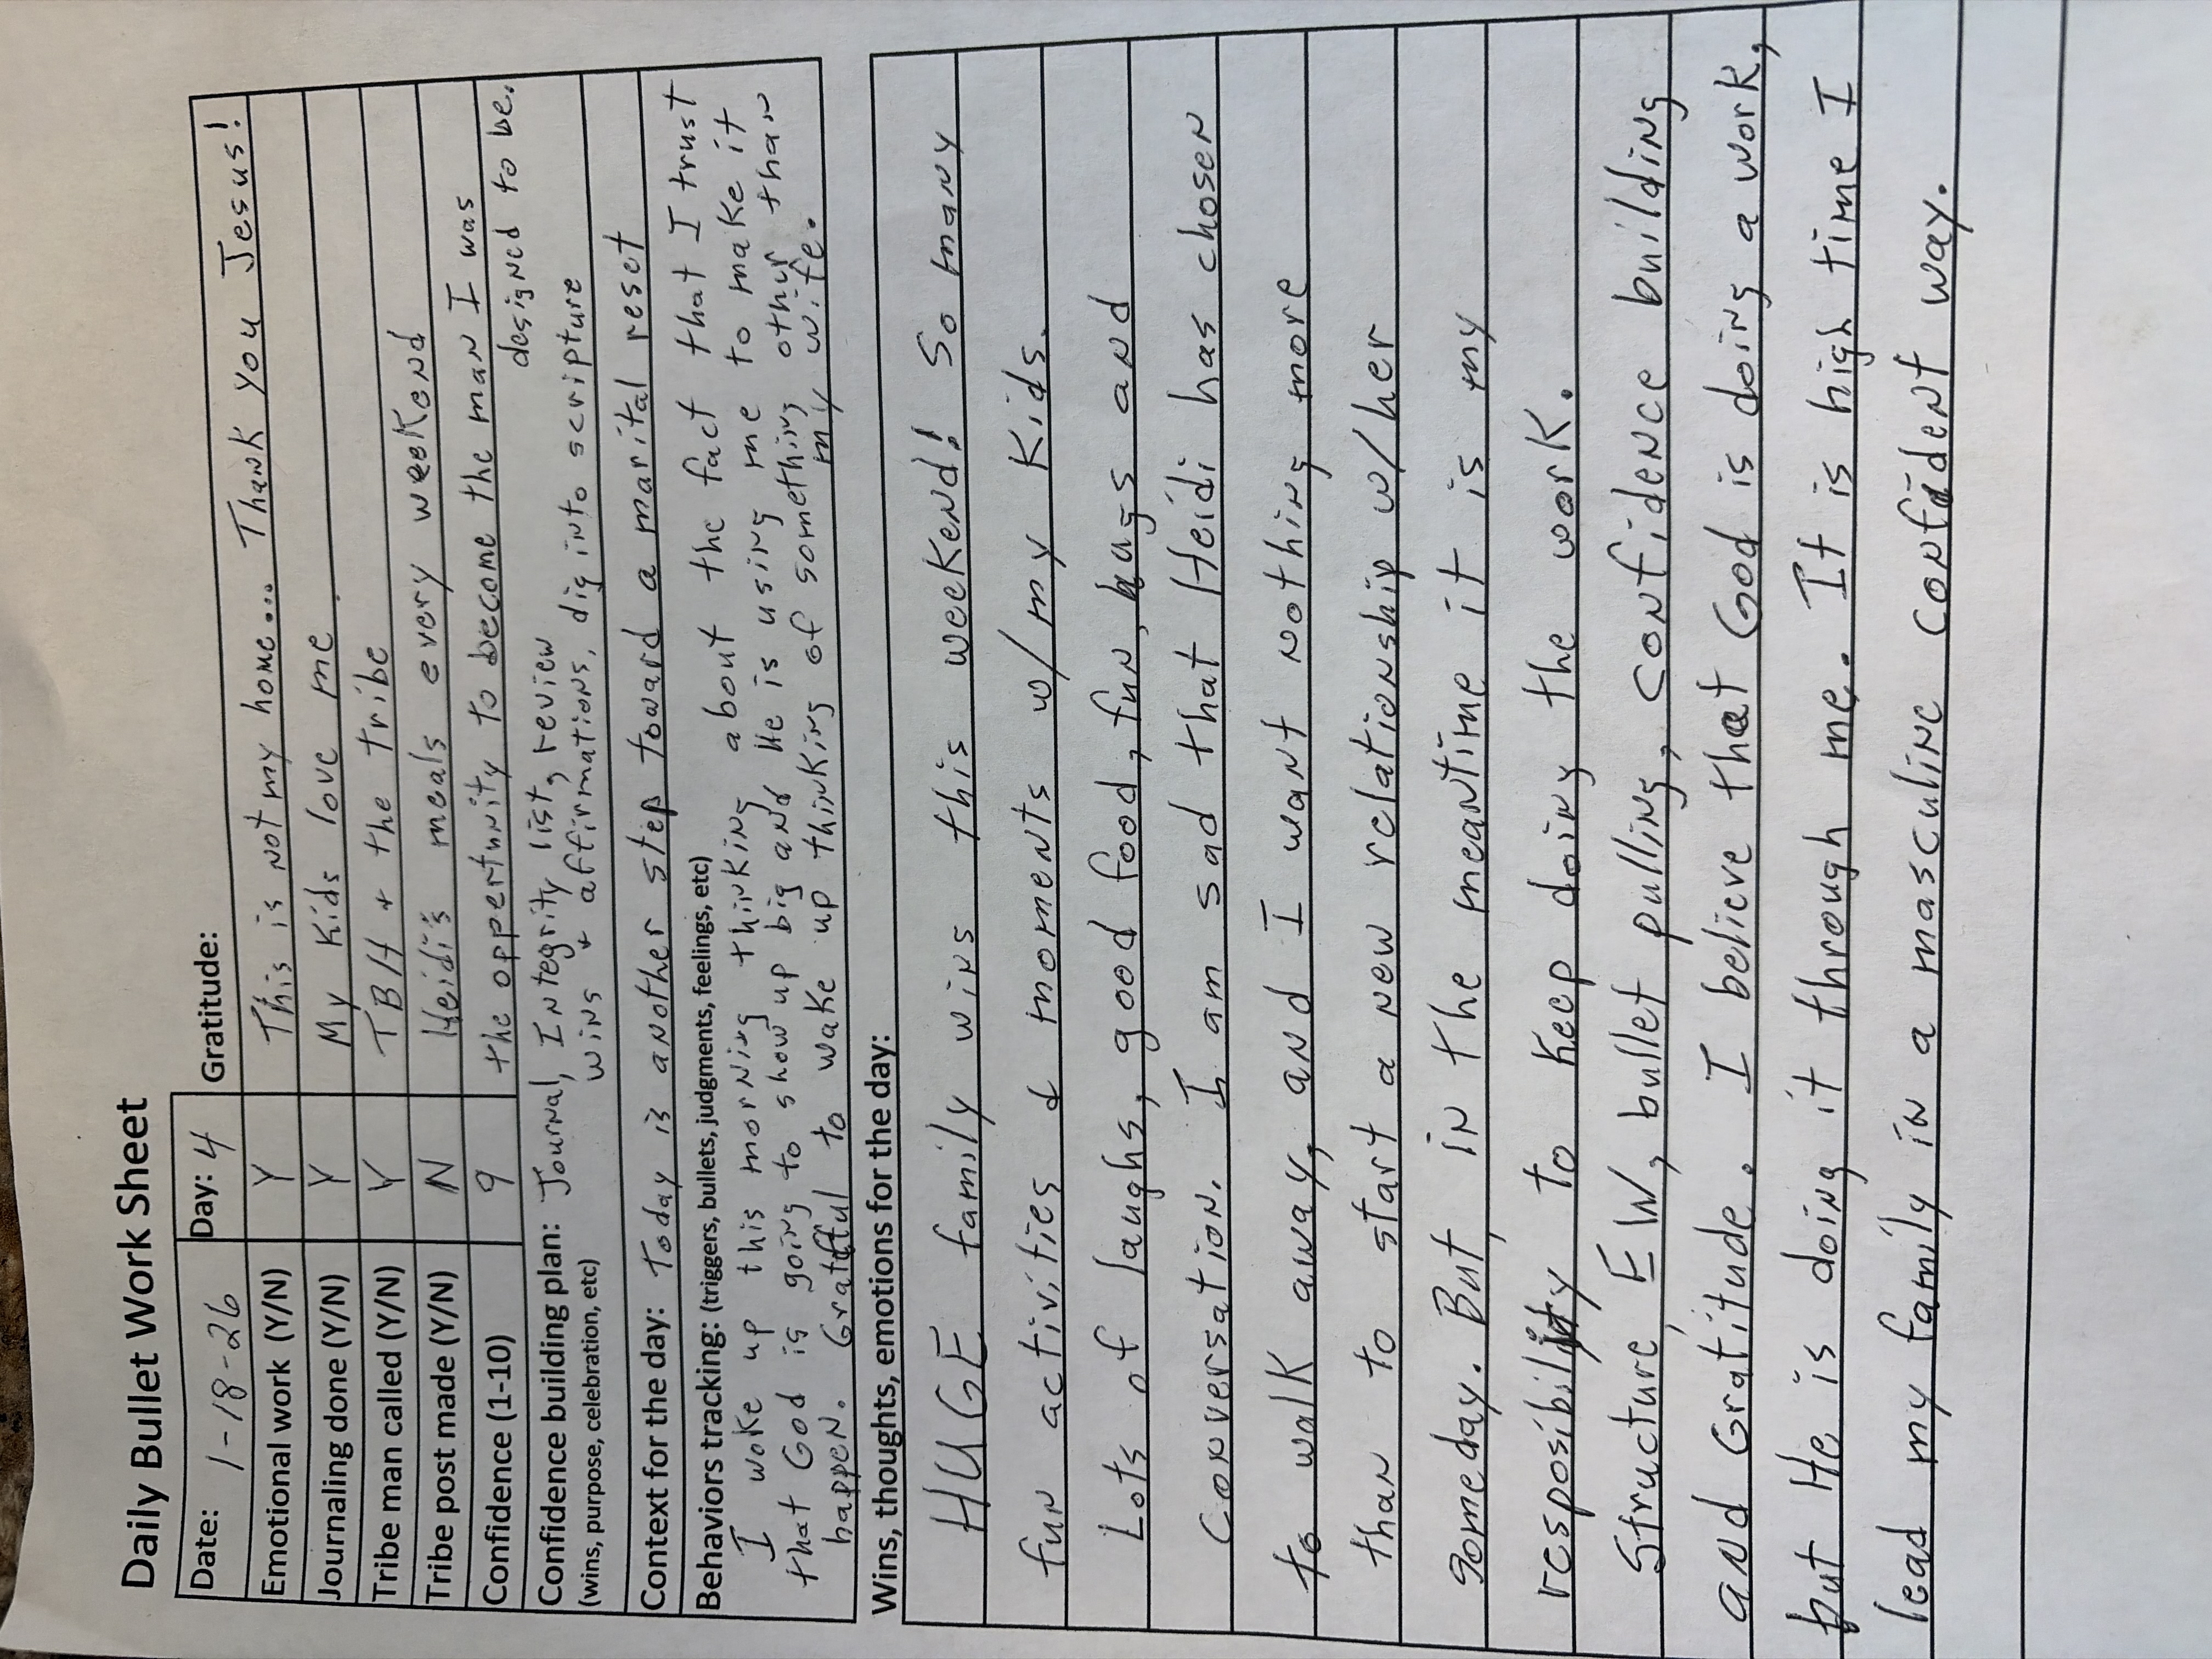 Daily Bullet Work Sheet
Date: 1-18-26 Day: 4 Gratitude:
Emotional work (Y/N) Y This is not my home... Thank you Jesus!
Journaling done (Y/N) Y My Kids love me.
Tribe man called (Y/N) Y TBH + the tribe
Tribe post made (Y/N) N Heidi's meals every weekend
Confidence (1-10) 9 the oppertunity to become the man I was
designed to be.
Confidence building plan: Journal, Integrity list, review
(wins, purpose, celebration, etc) wins + affirmations, dig into scripture
Context for the day: Today is another step toward a marital reset
Behaviors tracking: (triggers, bullets, judgments, feelings, etc)
I woke up this morning thinking about the fact that I trust
that God is going to show up big and He is using me to make it
happen. Grateful to wake up thinking of something other than
my wife.
Wins, thoughts, emotions for the day:
HUGE family wins this weekend! So many
fun activities & moments w/my Kids.
Lots of laughs, good food, fun, hugs and
Conversation. I am sad that Heidi has chosen
to walk away, and I want nothing more
than to start a new relationship w/her
someday. But, in the meantime it is my
resposibility to Keep doing the work.
Structure, EW, bullet pulling, confidence building
and Gratitude. I believe that God is doing a work,
but He is doing it through me. It is high time I
lead my family in a masculine confident way.